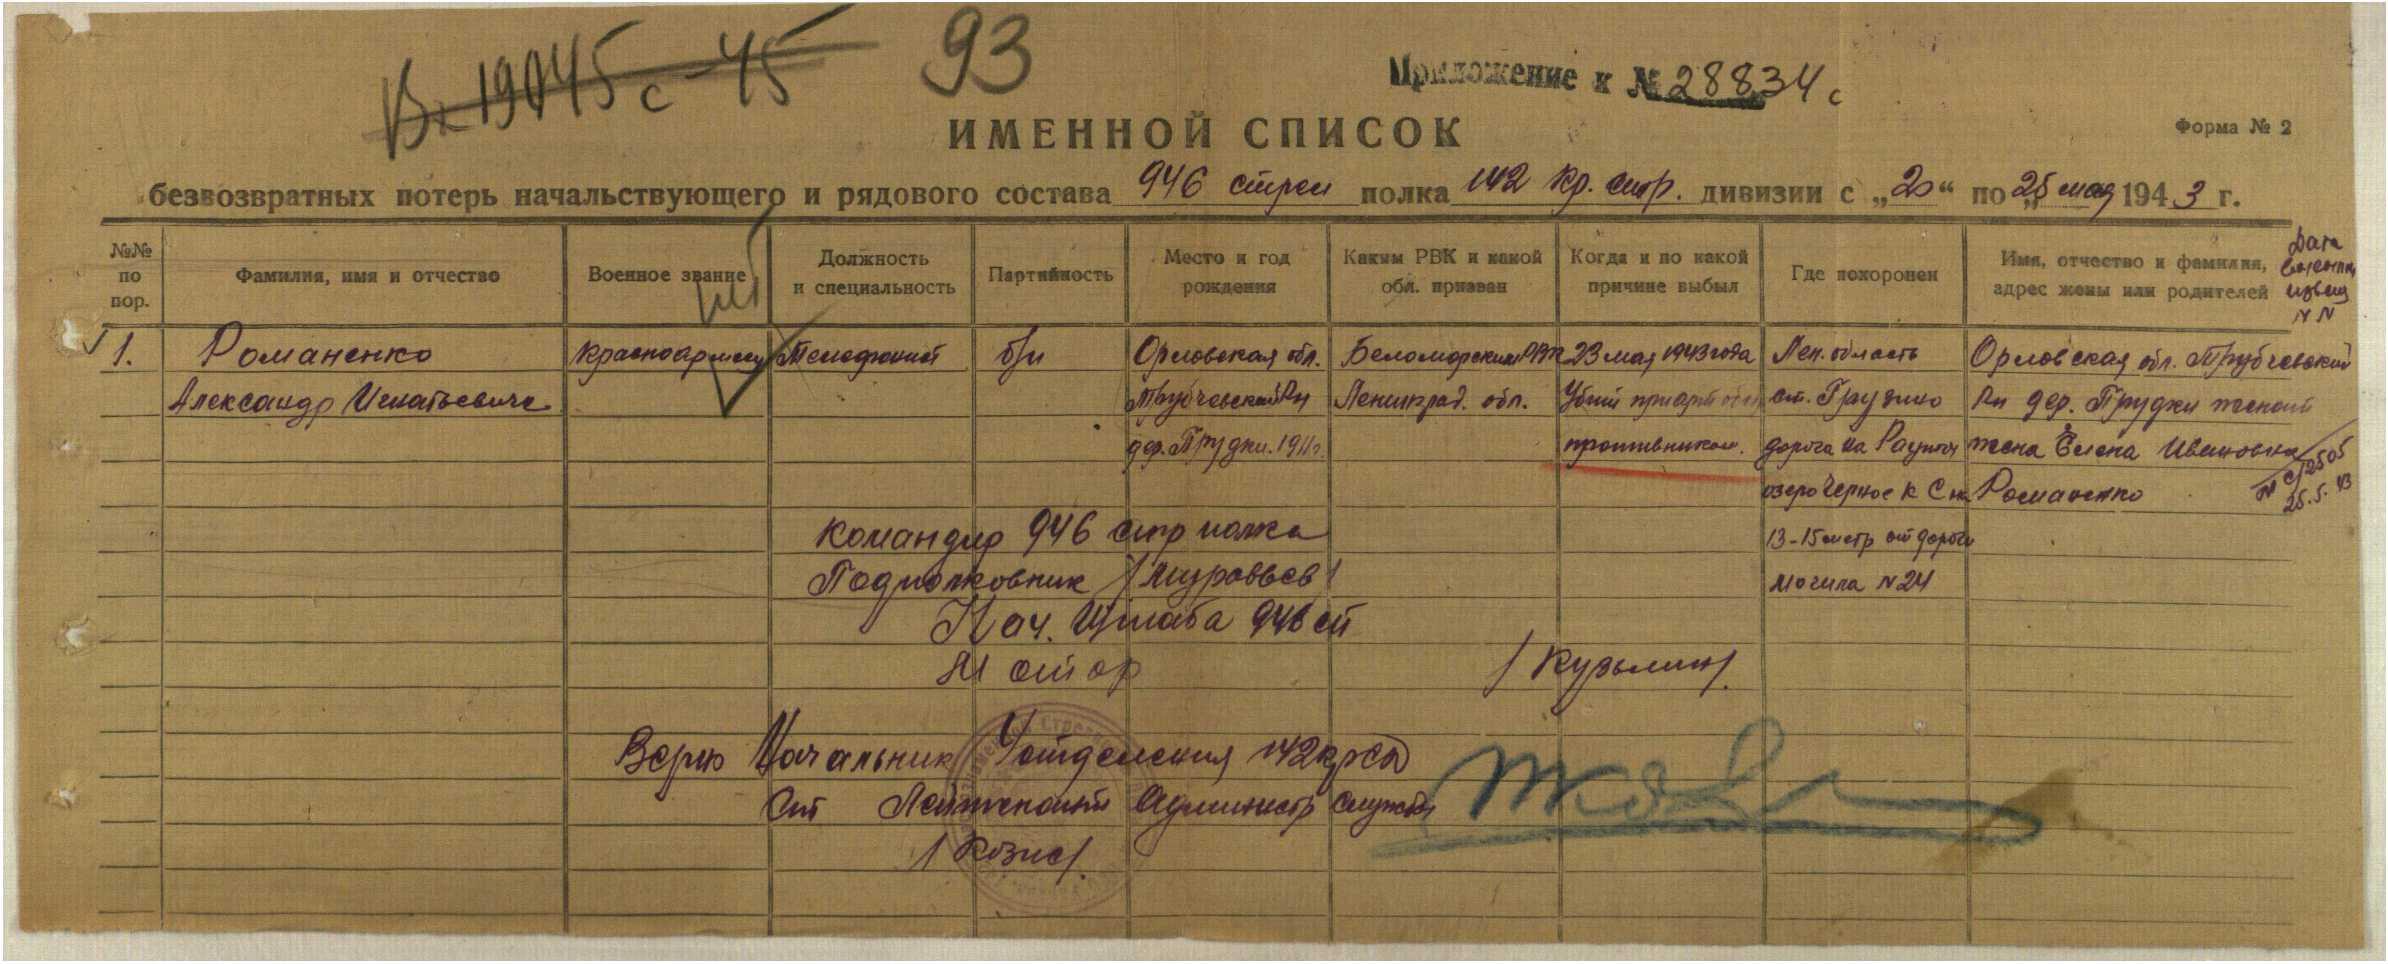 Вх 19045с-45
93
Приложение к № 28834 с
ИМЕННОЙ СПИСОК
Форма № 2
безвозвратных потерь начальствующего и рядового состава 946 стрел полка 142 кр. стр. дивизии с „20“ по „25 мая 1943 г.
№№ по пор.
Фамилия, имя и отчество
Военное звание
Должность и специальность
Партийность
Место и год рождения
Каким РВК и какой обл. призван
Когда и по какой причине выбыл
Где похоронен
Имя, отчество и фамилия, адрес жены или родителей
Дата
извещ
N N
1.
Романенко
Александр Игнатьевич
Красноармеец
Телефонист
б/п
Орловская обл.
Трубчевский Рн
дер. Прудки. 1911г.
Беломорским РВК
Ленинград. обл.
23 мая 1943 года
Убит при арт
противником.
Лен. область
ст. Грузино
дорога на
озеро Черное к С
13-15 метр от дороги
Могила N 24
Орловская обл. Трубчевский
Рн дер. Прудки
жена Елена Ивановна
Романенко
N 2505
25.5.43
Командир 946 стр полка
Подполковник /Муравьев/
Нач. Штаба 946 сп
Майор /Кузьмин/
Верно Начальник 4 отделения 142 крсд
Ст Лейтенант Администр службы